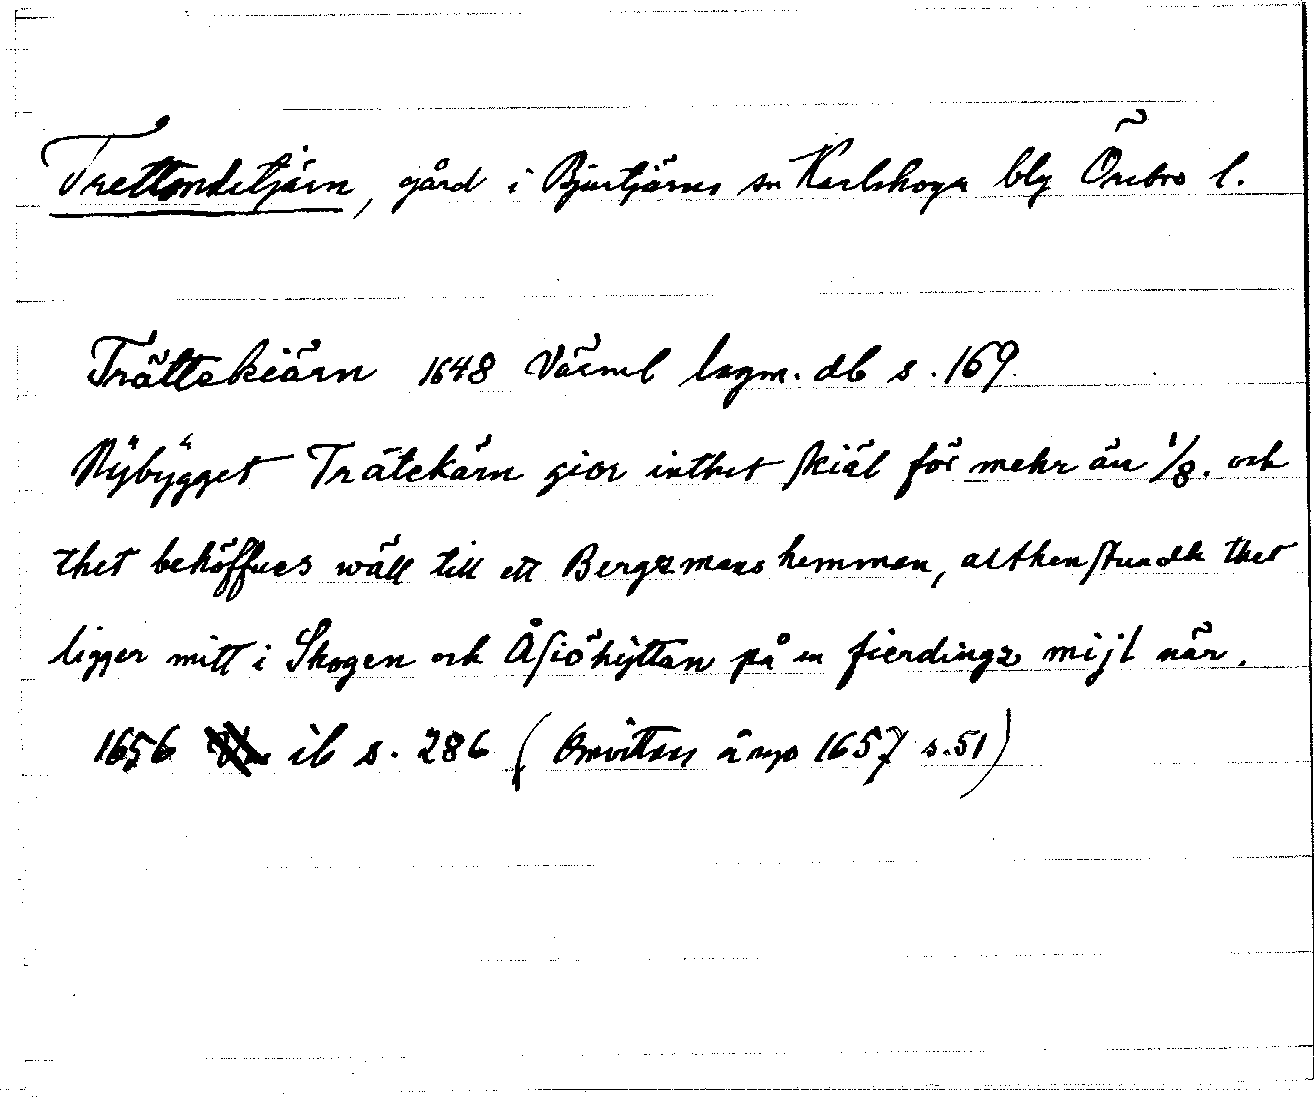 Trettondetjärn, gård i Bjurtjärns sn Karlskoga blg Örebro l.
Trättekiärn 1648 Värml lagm. db s. 169
Nÿbÿgget Trätekärn giör inthet skiäl för mehr än 1/8. och
thet behöffues wäll till ett Bergzmans hemman, althenstundh thet
ligger mitt i Skogen och Åsiöhÿttan på en fierdingz mijl när.
1656 ib s. 286 ( 1657 s. 51)